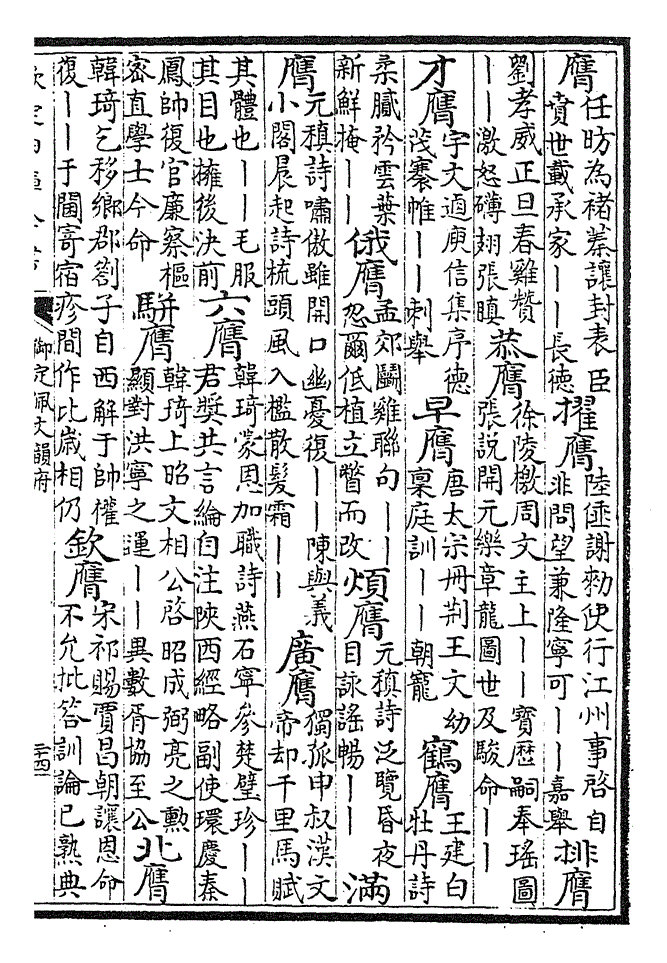 膺
任昉為褚蓁讓封表臣
賁世載承家丨丨長德
擢膺
陸倕謝勅使行江州事啓自
非問望兼隆寧可丨丨嘉舉
排膺
劉孝威正旦春雞贊
丨丨激怒磚翅張瞋
恭膺
徐陵檄周文主上丨丨寶歷嗣奉瑤圖
張說開元樂章龍圖世及駿命丨丨
才膺
宇文逌庾信集序德
茂褰帷丨丨刺舉
早膺
唐太宗冊荆王文幼
稟庭訓丨丨朝寵
鶴膺
王建白
牡丹詩
柔膩矜雲葉
新鮮掩丨丨
俄膺
孟郊鬬雞聯句丨丨
忽爾低植立瞥而改
煩膺
元稹詩泛覽昏夜
目詠謠暢丨丨
滿
膺
元稹詩嘯傲雖開口幽憂復丨丨陳與義
小閣晨起詩梳頭風入檻散髮霜丨丨
廣膺
獨孤申叔漢文
帝却千里馬賦
其體也丨丨毛服
其目也擁後決前
六膺
韓琦蒙恩加職詩燕石寧參楚璧珍丨丨
君獎共言綸自注陝西經略副使環慶秦
鳳帥復官廉察樞
密直學士今命
駢膺
韓琦上昭文相公啓昭成弼亮之勲
顯對洪寧之運丨丨異數胥協至公
北膺
韓琦乞移鄉郡劄子自西解于帥權
復丨丨于閫寄宿疹間作比歲相仍
欽膺
宋祁賜賈昌朝讓恩命
不允批答訓論已熟典
欽定四庫全書
御定佩文韻府